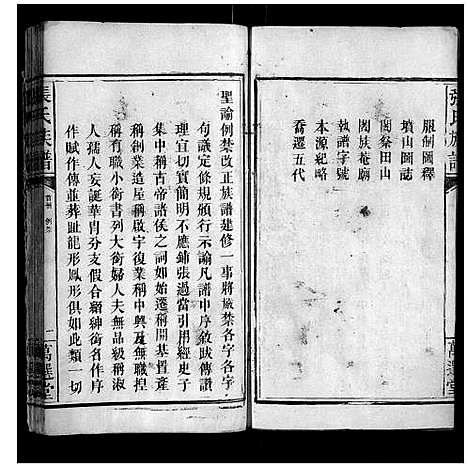 服制圖釋
墳山圖誌
閤祭田山
閤族菴廟
執譜字號
本源紀略
喬遷五代
聖諭例禁改正族譜建修一事將嚴禁各字各字
句議定條規頒行示諭凡譜中序敘跋傳讚
理宜切實簡明不應鋪張過當引用經史子
集中稱古帝諸侯之詞如始遷稱開基置產
稱創業造屋稱啟宇復業稱中興及無職揑
稱有職小銜書列大銜婦人夫無品級稱淑
人孺人妄誕華胄分支假合縉紳銜名作啟
作賦作傳並葬趾龍形鳳形俱如此類一切
張氏族譜
萬選堂